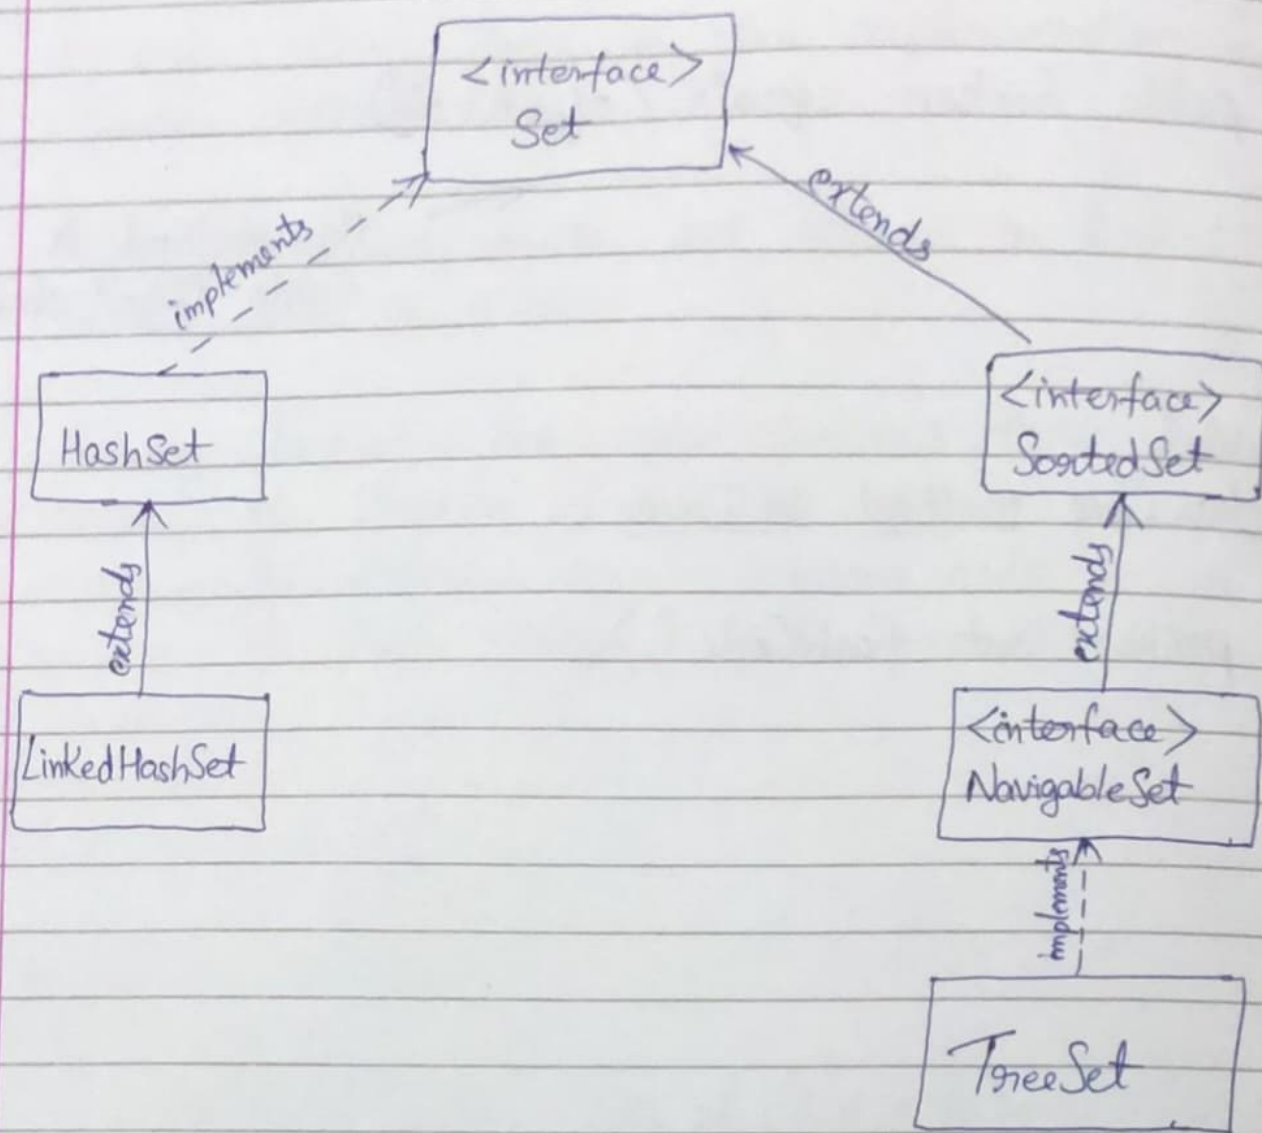 <interface>
Set
implements
extends
HashSet
<interface>
SortedSet
extends
extends
LinkedHashSet
<interface>
NavigableSet
implements
TreeSet